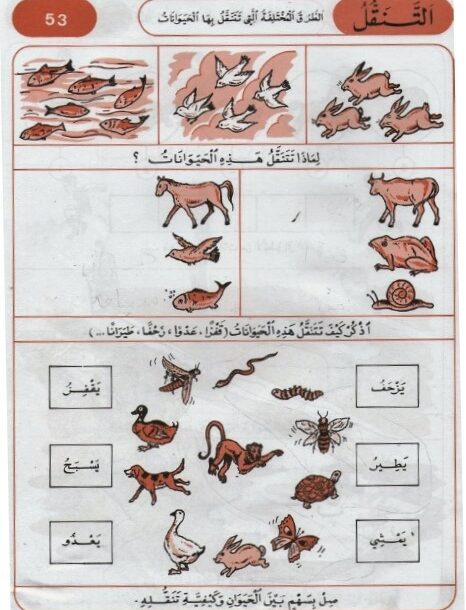 53
التَّنَقُّلُ
الطُرُقُ الْمُخْتَلِفَةُ الَّتِي تَتَنَقَّلُ بِهَا الْحَيَوَانَاتُ
لِمَاذَا تَتَنَقَّلُ هَذِهِ الْحَيَوَانَاتُ ؟
اُذْكُرْ كَيْفَ تَتَنَقَّلُ هَذِهِ الْحَيَوَانَاتُ (قَفْزًا، عَدْوًا، زَحْفًا، طَيَرَانًا ...)
يَزْحَفُ
يَقْفِزُ
يَطِيرُ
يَسْبَحُ
يَمْشِي
يَعْدُو
صِلْ بِسَهْمٍ بَيْنَ الْحَيَوَانِ وَكَيْفِيَّةِ تَنَقُّلِهِ .